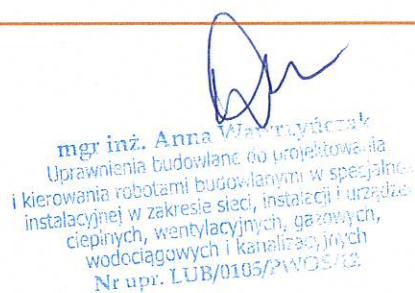 mgr inż. Anna Wawrzyńczak
Uprawnienia budowlane do projektowania
i kierowania robotami budowlanymi w specjalno
instalacyjnej w zakresie sieci, instalacji i urządze
cieplnych, wentylacyjnych, gazowych,
wodociągowych i kanalizacyjnych
Nr upr. LUB/0105/PWOS/12